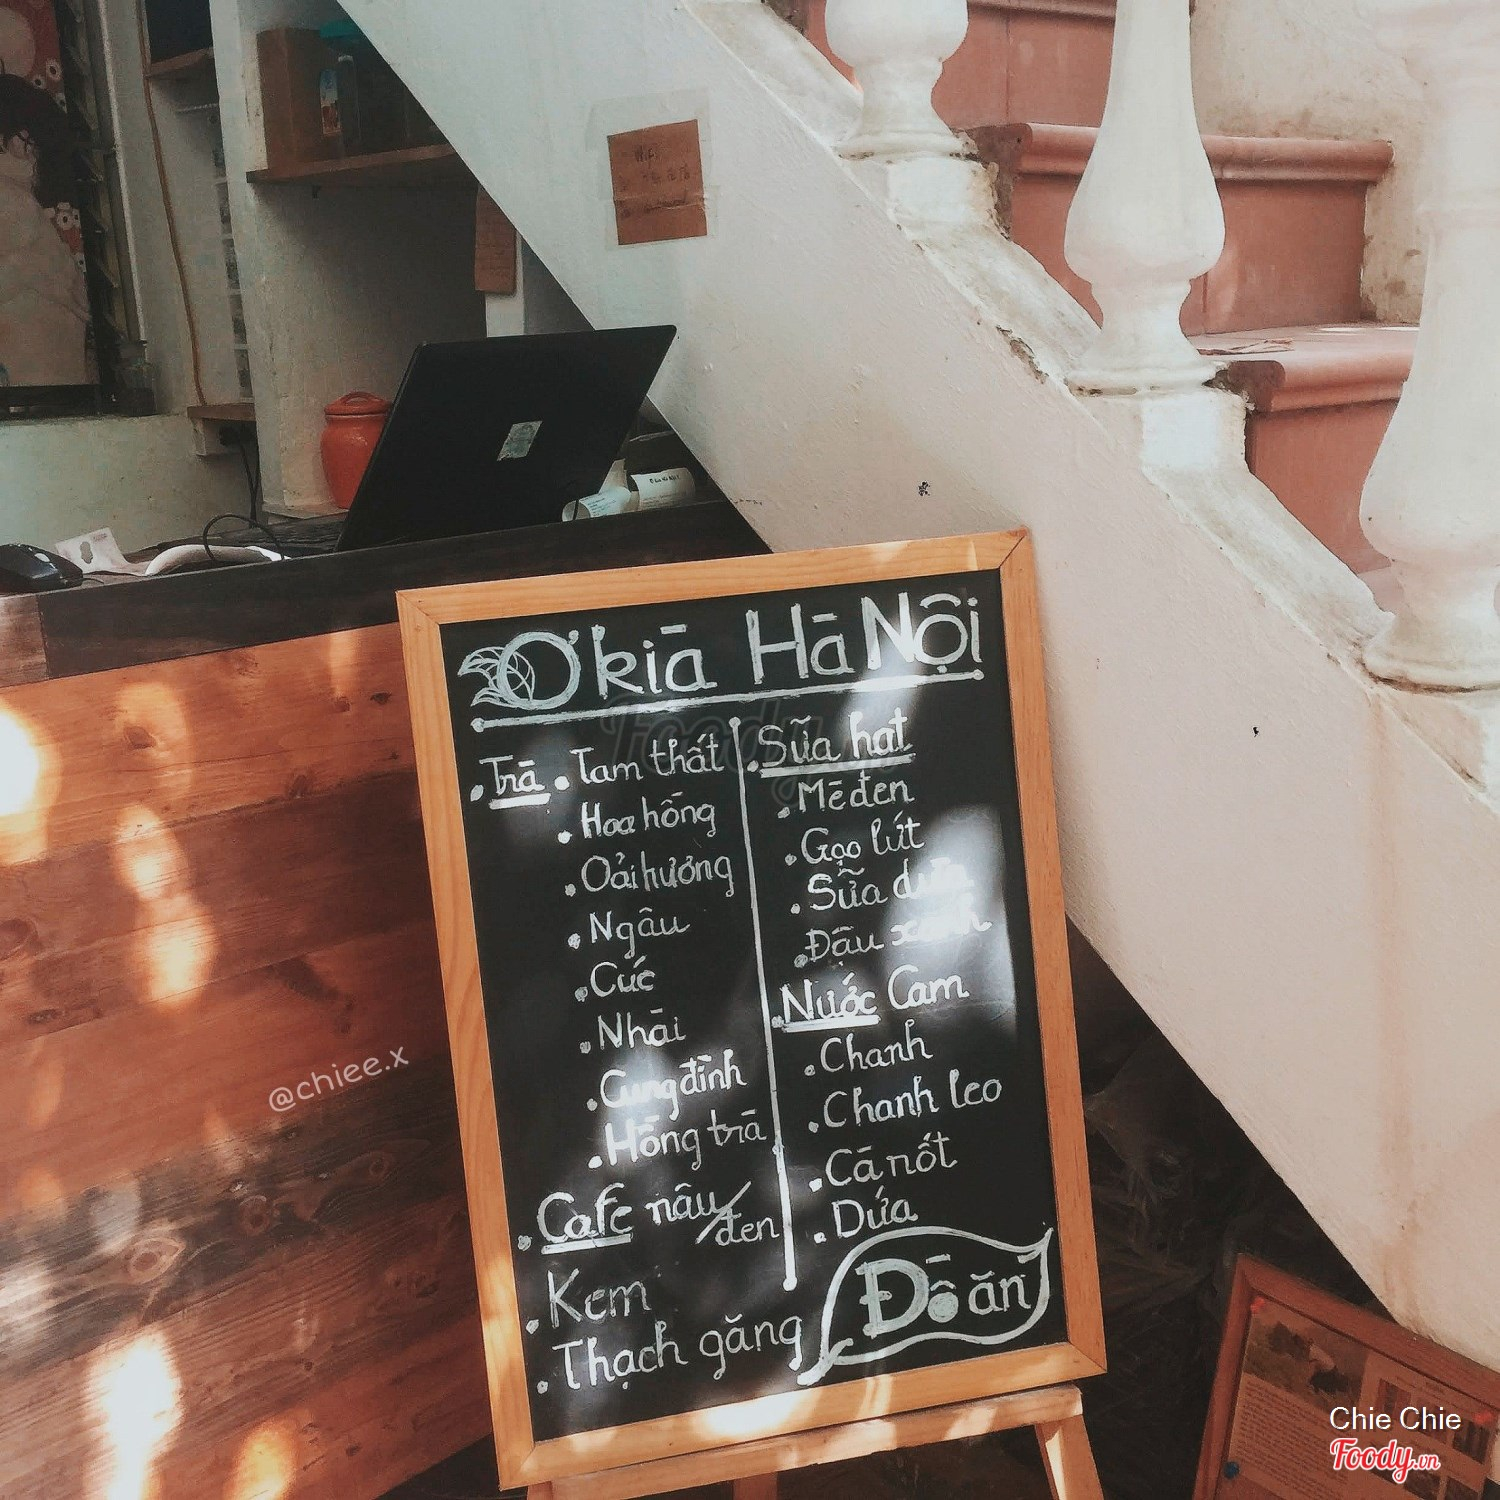 Wifi
Ơ'kìa Hà Nội
Foody
Trà
Tam thất
Hoa hồng
Oải hương
Ngâu
Cúc
Nhài
Cung đình
Hồng trà
Cafe nâu/đen
Kem
Thạch găng
Sữa hạt
Mè đen
Gạo lứt
Sữa dừa
Đậu xanh
Nước Cam
Chanh
Chanh leo
Cà rốt
Dứa
Đồ ăn
@chiee.x
Chie Chie
Foody.vn